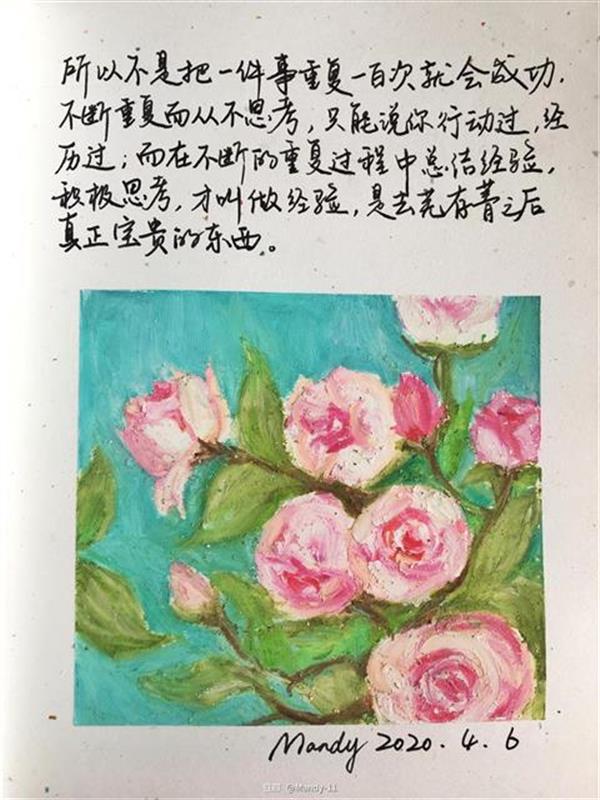 所以不是把一件事重复一百次就会成功.
不断重复而从不思考，只能说你行动过，经
历过；而在不断的重复过程中总结经验，
积极思考，才叫做经验，是去芜存菁之后
真正宝贵的东西。
Mandy 2020.4.6
豆瓣 @Mandy-11